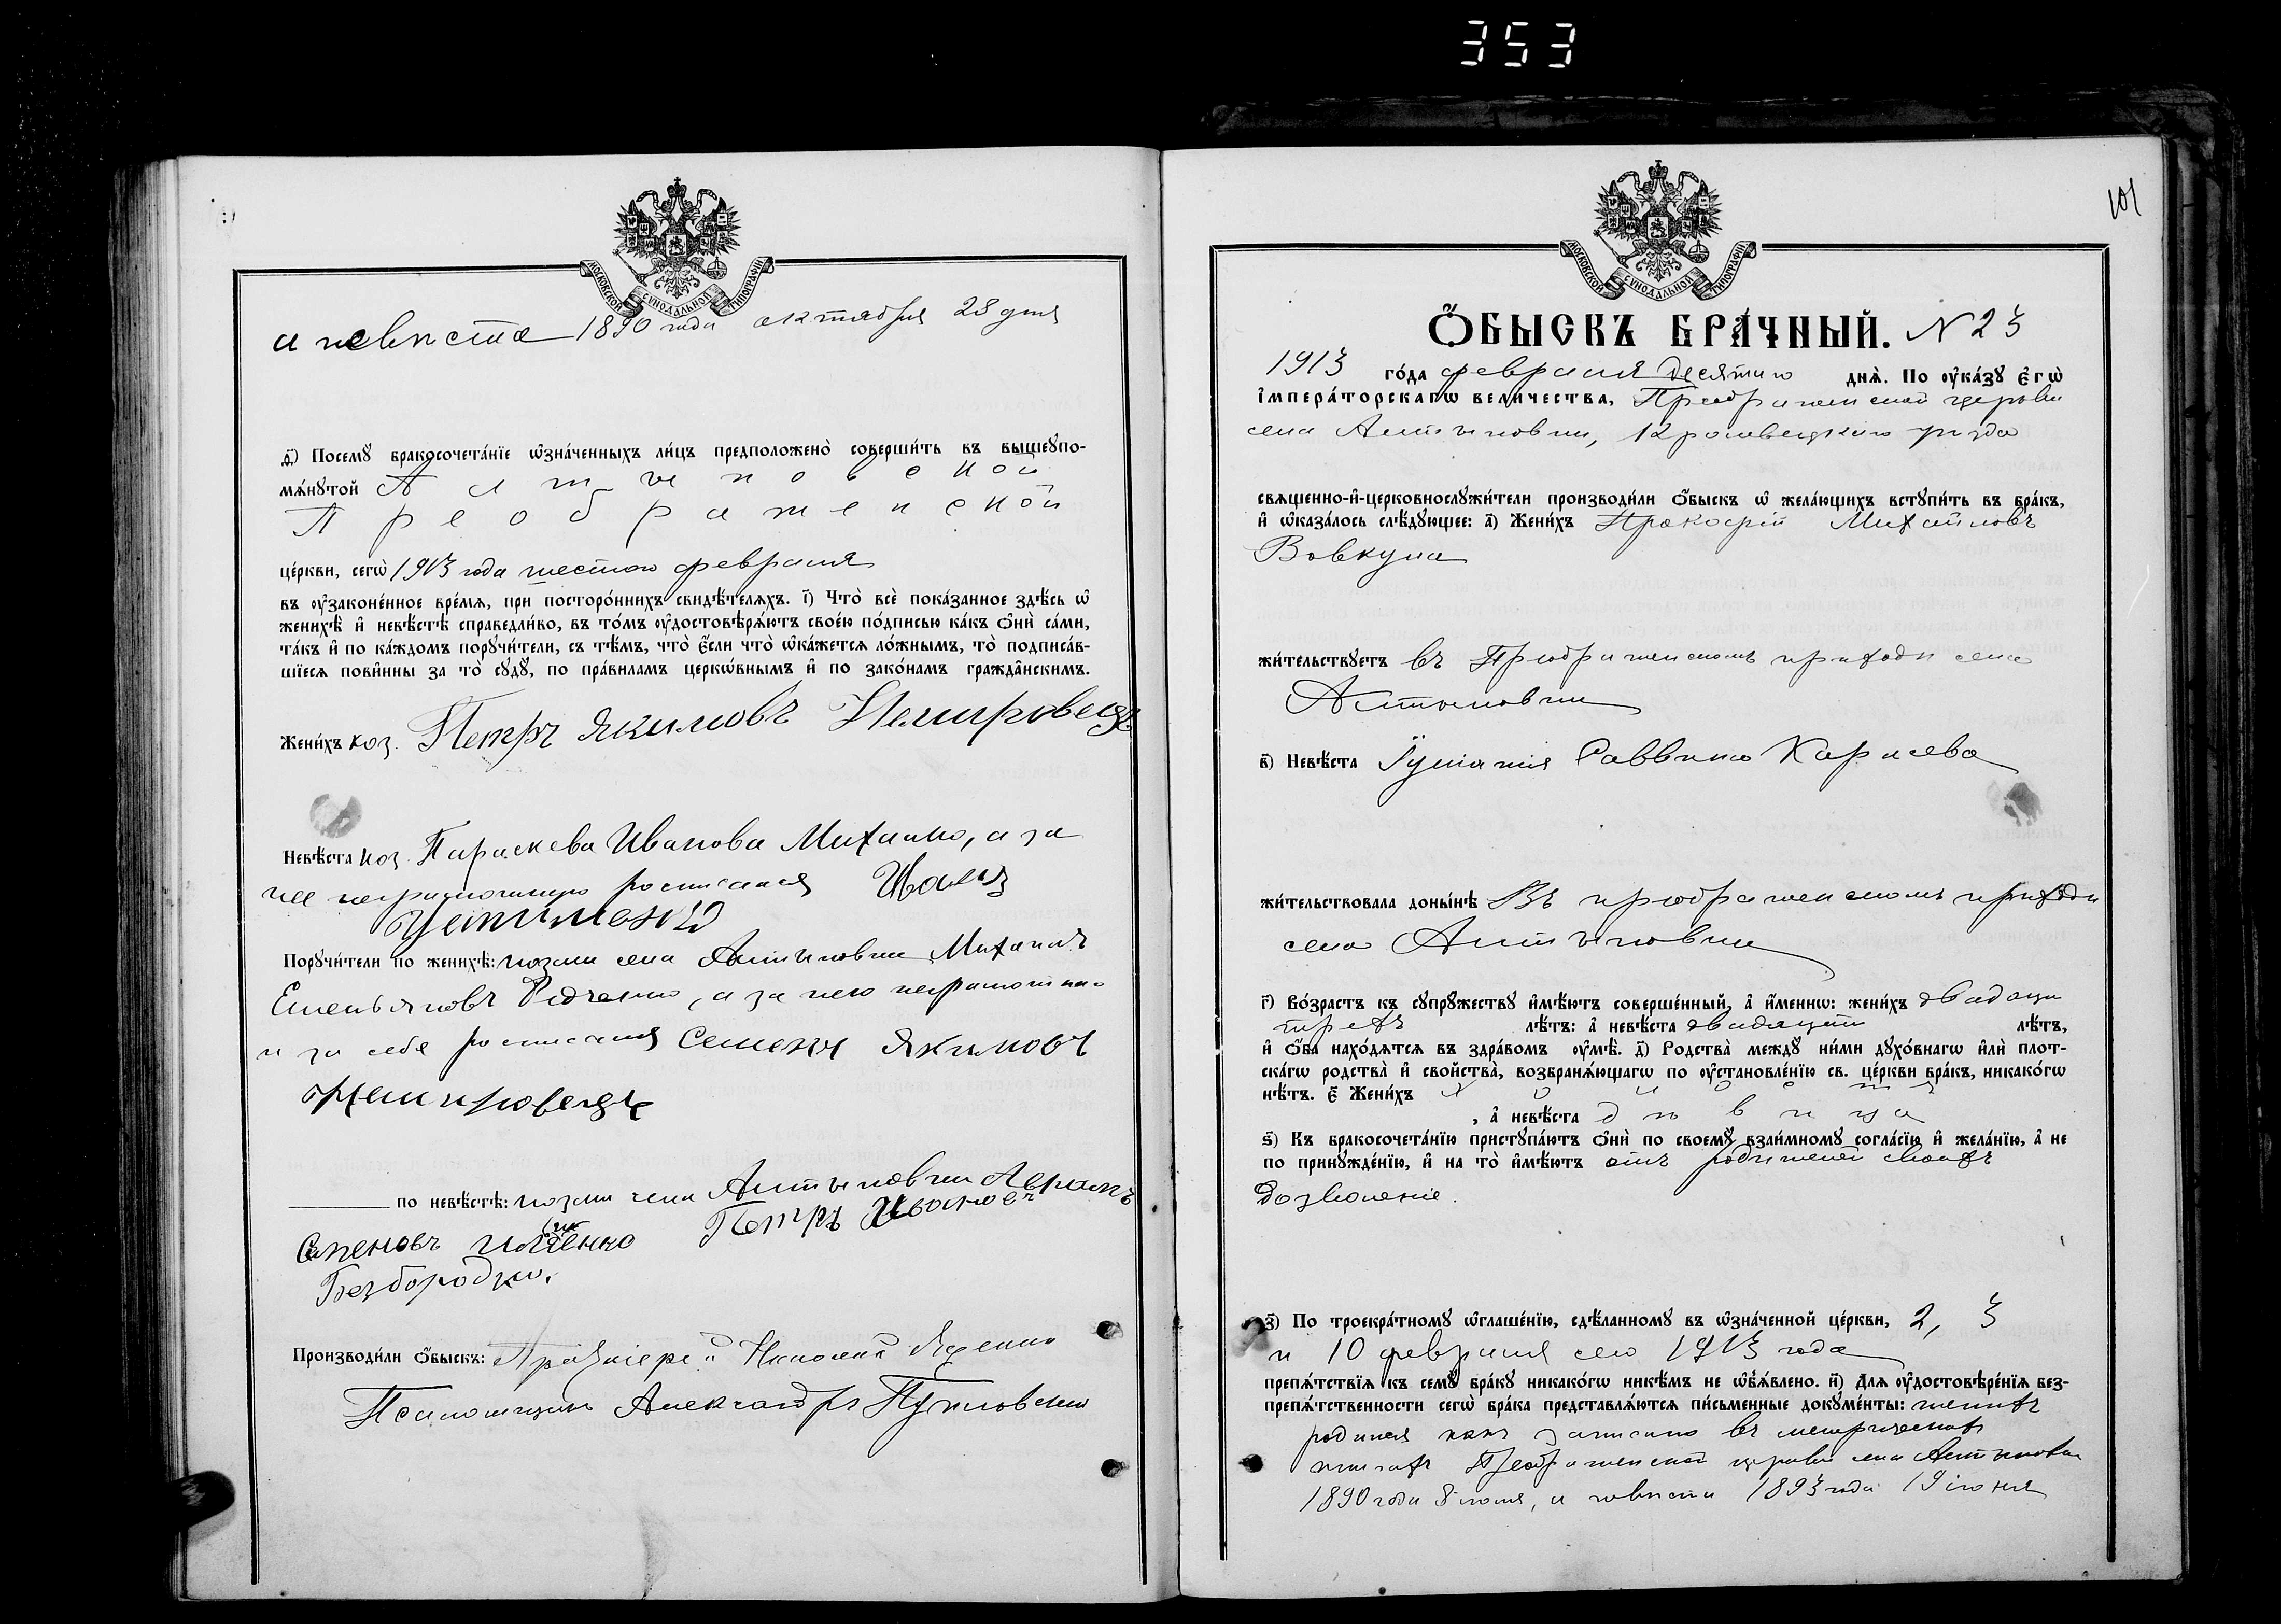 353
МОСКОВСКОЙ СѴНОДАЛЬНОЙ ТИПОГРАФІИ
а невѣста 1890 года октября 28 дня
ѳ҃) Посемꙋ̀ бракосочета́нїе ѡ҆зна́ченныхъ ли́цъ предположено̀ соверши́ть въ вышеꙋпо-
мѧ́нꙋтой Алтыновской
Преображенской
це́ркви, сегѡ̀ 1913 года шестого февраля
въ ᲂу҆законе́нное вре́мѧ, при посторо́ннихъ свидѣ́телѧхъ. і҃) Что̀ всѐ пока́занное здѣ́сь ѡ҆
женихѣ̀ и҆ невѣ́стѣ справедли́во, въ то́мъ ᲂу҆достовѣрѧ́ютъ свое́ю по́дписью ка́къ ѻ҆нѝ са́ми,
та́къ и҆ по ка́ждомъ порꙋчи́тели, съ тѣ́мъ, что̀ є҆́сли что̀ ѡ҆ка́жетсѧ ло́жнымъ, то̀ подписа́в-
шїесѧ пови́нны за то̀ сꙋдꙋ̀, по пра́виламъ церкѡ́внымъ и҆ по зако́намъ гражда̑нскимъ.
Жени́хъ коз. Петръ Якимовъ Немировецъ
Невѣ́ста коз. Параскева Иванова Михалко, а за
нее неграмотную росписался Иванъ
Порꙋчи́тели по женихѣ̀: козаки села Алтыновки Михаилъ
Емельяновъ Редченко, а за него неграмотнаго
и за себя росписался Семенъ Якимовъ
Немировецъ
по невѣ́стѣ: козаки села Алтыновки Аврамъ
Семеновъ Петръ Ивановъ
Безбородко.
Производи́ли ѻ҆́быскъ: Протоіерей Николай Яценко
Псаломщикъ Александръ
101
МОСКОВСКОЙ СѴНОДАЛЬНОЙ ТИПОГРАФІИ
Ѻ҆́БЫСКЪ БРА́ЧНЫЙ. N 23
1913 го́да февраля десятаго днѧ̀. По ᲂу҆ка́зꙋ Є҆гѡ̀
І҆мпера́торскагѡ вели́чества, Преображенской церкви
села Алтыновки, Кролевецкаго уѣзда
свѧщенно-и҆-церковнослꙋжи́тели производи́ли ѻ҆́быскъ ѡ҆ жела́ющихъ встꙋпи́ть въ бра́къ,
и҆ ѡ҆каза́лось слѣ́дꙋющее: а҃) Жени́хъ Прокофій Михайловъ
Вовкула
жи́тельствꙋетъ въ Преображенскомъ приходѣ села
Алтыновки
в҃) Невѣ́ста Іуліанія Саввина Карлева
жи́тельствовала доны́нѣ Въ преображенскомъ приходѣ
села Алтыновки
г҃) Во́зрастъ къ сꙋпрꙋ́жествꙋ и҆мѣ́ютъ соверше́нный, а҆ и҆́меннѡ: жени́хъ двадцати
трехъ лѣ́тъ: а҆ невѣ́ста двадцати лѣ́тъ,
и҆ ѻ҆́ба нахо́дѧтсѧ въ здра́вомъ ᲂу҆мѣ̀. д҃) Родства̀ междꙋ̀ ни́ми дꙋхо́внагѡ и҆лѝ плот-
ска́гѡ родства̀ и҆ свойства̀, возбранѧ́ющагѡ по ᲂу҆становле́нїю св. це́ркви бра́къ, никако́гѡ
нѣ́тъ. є҃) Жени́хъ холостъ
, а҆ невѣ́ста дѣвица
ѕ҃) Къ бракосочета́нїю пристꙋпа́ютъ ѻ҆нѝ по своемꙋ̀ взаи́мномꙋ согла́сїю и҆ жела́нїю, а҆ не
по принꙋжде́нїю, и҆ на то̀ и҆мѣ́ютъ отъ родителей своихъ
дозволеніе.
з҃) По троекра́тномꙋ ѡ҆глаше́нїю, сдѣ́ланномꙋ въ ѡ҆зна́ченной це́ркви, 2, 3
и 10 февраля сего 1913 года
препѧ́тствїѧ къ семꙋ̀ бра́кꙋ никако́гѡ никѣ́мъ не ѡ҆б̾ѧ́влено. и҃) Длѧ ᲂу҆достовѣре́нїѧ без-
препѧ́тственности сегѡ̀ бра́ка представлѧ́ютсѧ пи́сьменные докꙋме́нты: женихъ
родился какъ записано въ метрическихъ
книгахъ Преображенской церкви села Алтыновки
1890 года 8 іюля, а невѣста 1893 года 19 іюня